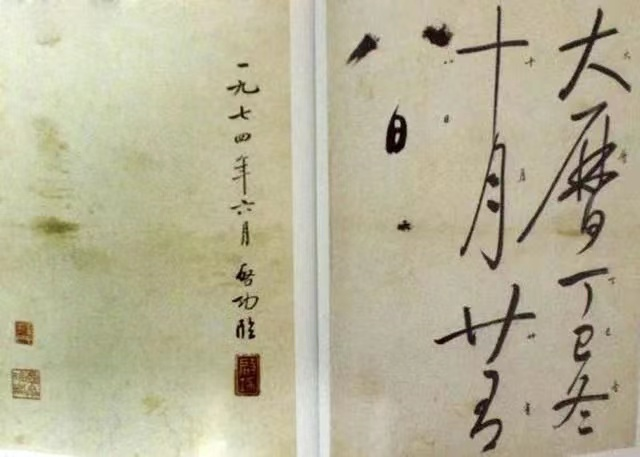 大曆丁巳冬
十月廿有
八日
一九七四年六月 啓功臨